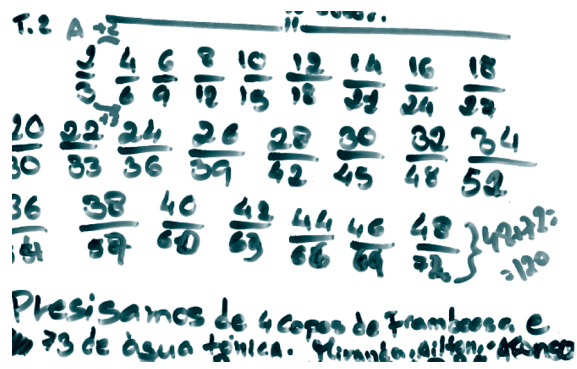 T.2 A +2
2/3 4/6 6/9 8/12 10/15 12/18 14/21 16/24 18/27
+3
20/30 22/33 24/36 26/39 28/42 30/45 32/48 34/52
36/54 38/57 40/60 42/63 44/66 46/69 48/72 } 48+72=
=120
Presisamos de 4 copos de Framboesa e
73 de água tónica. Miranda, Milton, Afonso